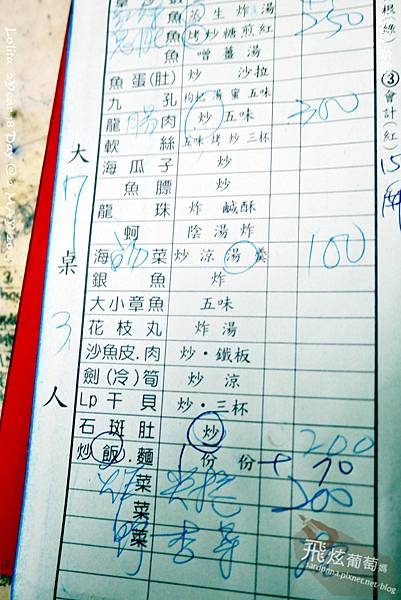 魚 生 炸 湯
魚 烤 炒 糖 煎 紅 250
魚 噌 薑 湯
魚蛋(肚) 炒 沙拉
九孔 枸杞 湯 蜜 五味
龍肉 炒 五味 300
軟絲 五味 烤 炒 三杯
海瓜子 炒
魚膘 炒
龍珠 炸 鹹酥
蚵 陰 湯 炸
海菜 炒 涼 湯 羹 100
銀魚 炸
大小章魚 五味
花枝丸 炸 湯
沙魚皮.肉 炒・鐵板
劍(冷)筍 炒 涼
Lp干貝 炒・三杯
石斑肚 炒 200
炒飯.麵 1份 份 + 70
菜 200
菜
菜
大 17 桌 3 人
根(綠)
(3)會計(紅)
15
Lolita
飛炫葡萄媽
sardinna.pixnet.net/blog